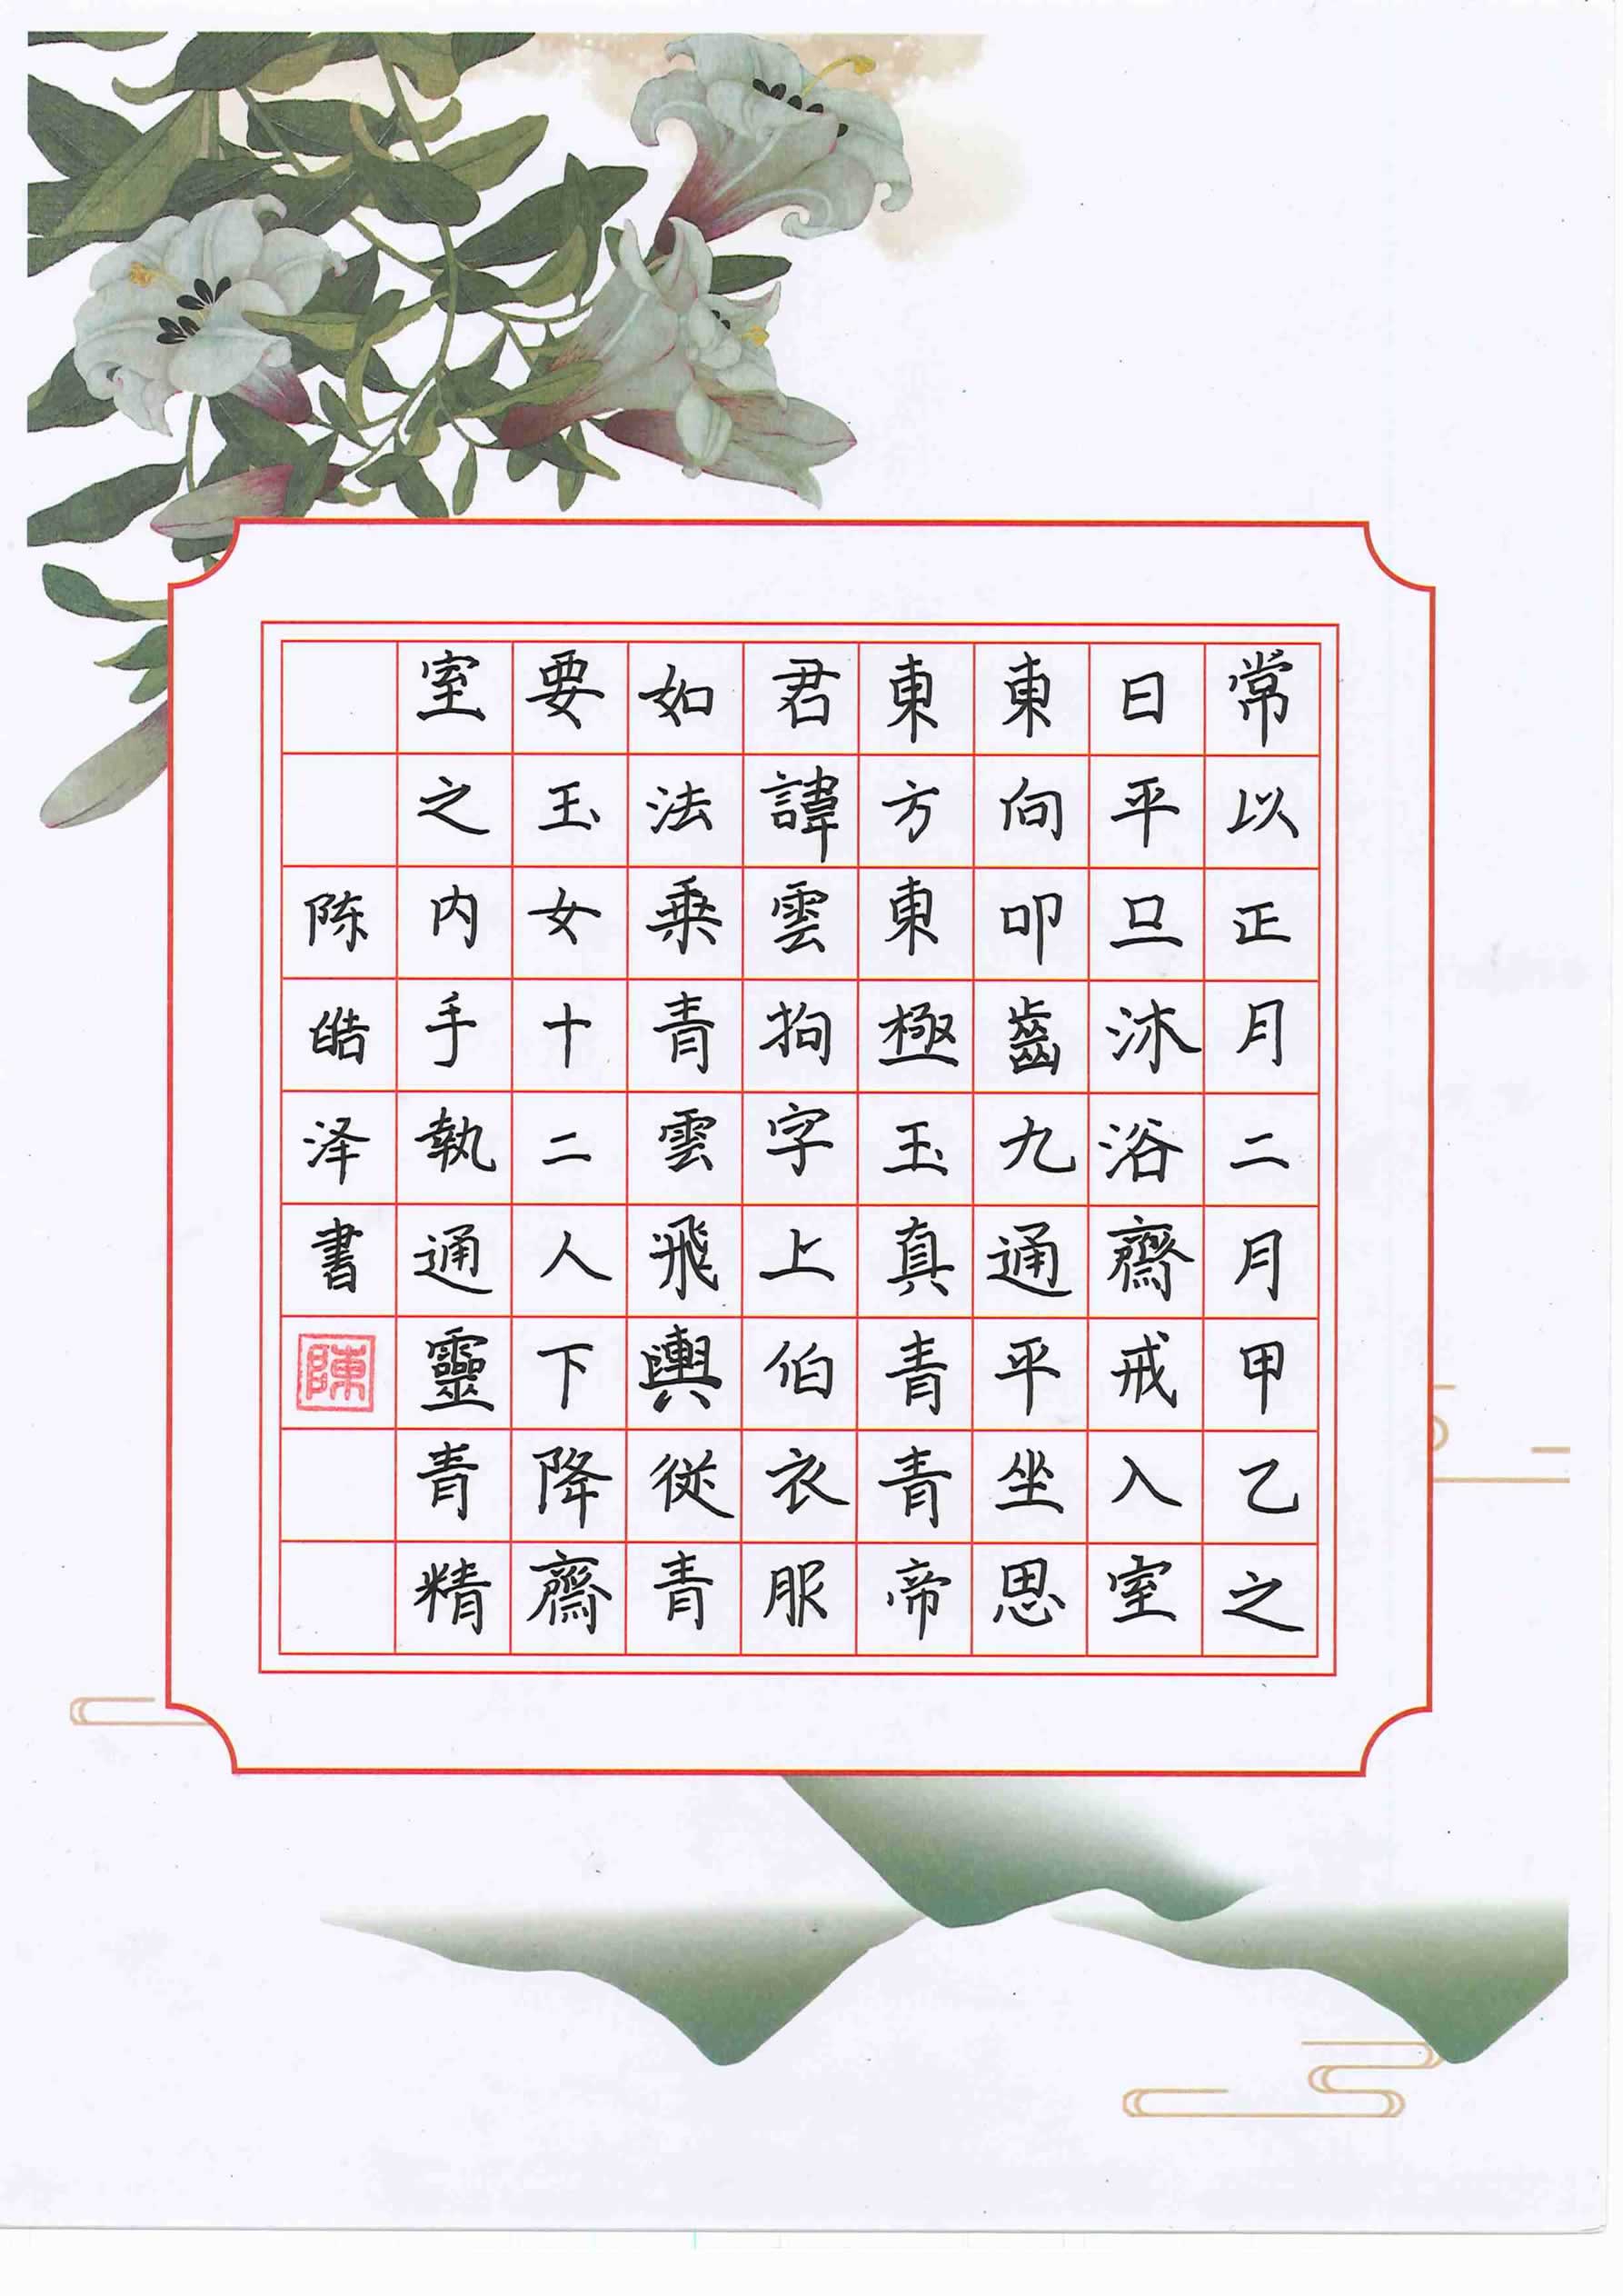 常以正月二月甲乙之
日平旦沐浴齋戒入室
東向叩齒九通平坐思
東方東極玉真青青帝
君諱雲拘字上伯衣服
如法乗青雲飛輿從青
要玉女十二人下降齋
室之内手執通靈青精
陈皓泽書
陳